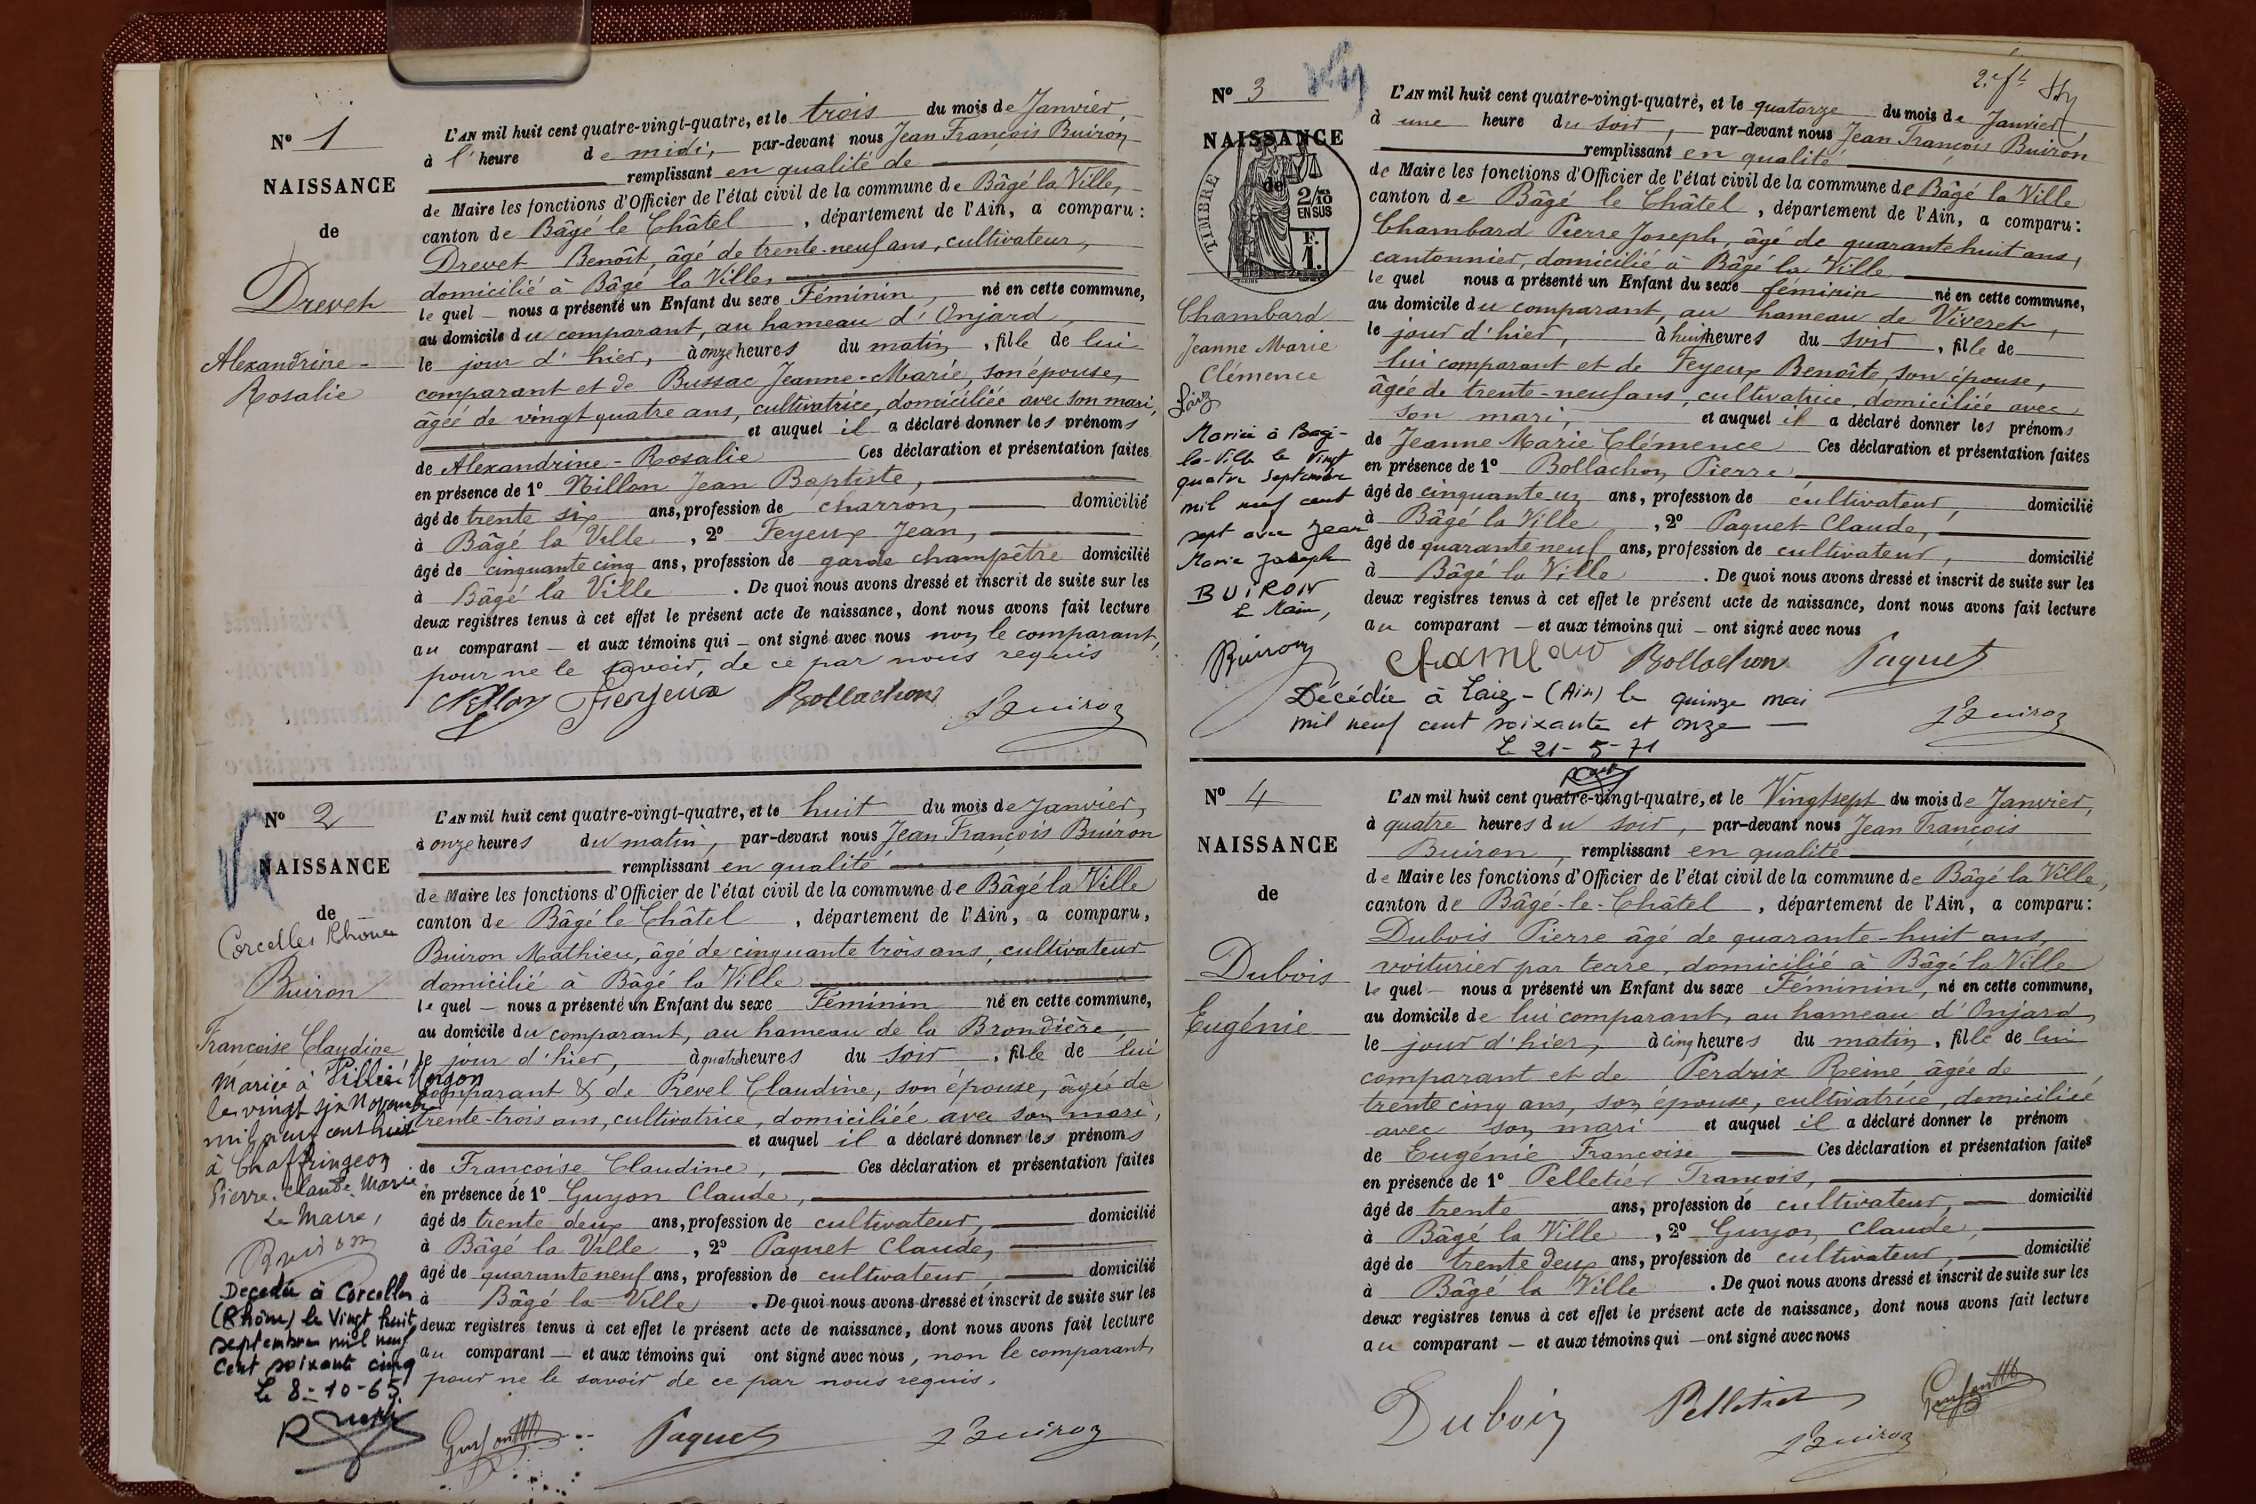 N° 1
NAISSANCE
de
Drevet
Alexandrine-
Rosalie
L'AN mil huit cent quatre-vingt-quatre, et le trois du mois de Janvier,
à 1' heure de midi, par-devant nous Jean François Buiron
remplissant en qualité de
de Maire les fonctions d'Officier de l'état civil de la commune de Bâgé la Ville,
canton de Bâgé le Châtel, département de l'Ain, a comparu:
Drevet Benoît, âgé de trente-neuf ans, cultivateur,
domicilié à Bâgé la Ville,
le quel – nous a présenté un Enfant du sexe Féminin, né en cette commune,
au domicile du comparant, au hameau d'Onjard
le jour d'hier, à onze heures du matin, fille de lui
comparant et de Bussac Jeanne-Marie, son épouse,
âgée de vingt quatre ans, cultivatrice, domiciliée avec son mari,
et auquel il a déclaré donner les prénoms
de Alexandrine-Rosalie Ces déclaration et présentation faites
en présence de 1° Nillon Jean Baptiste,
âgé de trente six ans, profession de charron, domicilié
à Bâgé la Ville, 2° Feyeux Jean,
âgé de cinquante cinq ans, profession de garde champêtre domicilié
à Bâgé la Ville. De quoi nous avons dressé et inscrit de suite sur les
deux registres tenus à cet effet le présent acte de naissance, dont nous avons fait lecture
au comparant – et aux témoins qui – ont signé avec nous non le comparant,
pour ne le savoir, de ce par nous requis
Nillon Feyeux Bollachon
J Buiron
N° 2
NAISSANCE
de
Corcelles Rhône
Buiron
Françoise Claudine
Mariée à Villié Morgon
le vingt six Novembre
mil neuf cent huit
à Chaffringeon
Pierre. Claude. Marie.
Le Maire,
Buiron
Décédée à Corcelles
(Rhône) le Vingt huit
septembre mil neuf
cent soixante cinq
Le 8-10-65
L'AN mil huit cent quatre-vingt-quatre, et le huit du mois de Janvier,
à onze heures du matin, par-devant nous Jean François Buiron
remplissant en qualité
de Maire les fonctions d'Officier de l'état civil de la commune de Bâgé la Ville
canton de Bâgé le Châtel, département de l'Ain, a comparu,
Buiron Mathieu, âgé de cinquante trois ans, cultivateur
domicilié à Bâgé la Ville
le quel – nous a présenté un Enfant du sexe Féminin né en cette commune,
au domicile du comparant, au hameau de la Brondière,
le jour d'hier, à quatre heures du soir, fille de lui
comparant & de Prevel Claudine, son épouse, âgée de
trente-trois ans, cultivatrice, domiciliée avec son mari,
et auquel il a déclaré donner les prénoms
de Françoise Claudine, Ces déclaration et présentation faites
en présence de 1° Guyon Claude,
âgé de trente deux ans, profession de cultivateur, domicilié
à Bâgé la Ville, 2° Paquet Claude,
âgé de quarante neuf ans, profession de cultivateur, domicilié
à Bâgé la Ville. De quoi nous avons dressé et inscrit de suite sur les
deux registres tenus à cet effet le présent acte de naissance, dont nous avons fait lecture
au comparant – et aux témoins qui ont signé avec nous, non le comparant,
pour ne le savoir de ce par nous requis.
Paquet J Buiron
2e ft
N° 3
NAISSANCE
de
TIMBRE
2/10
EN SUS
F.
1.
Chambard
Jeanne Marie
Clémence
Laiz
Mariée à Bagé-
la-Ville le Vingt
quatre Septembre
mil neuf cent
sept avec Jean
Marie Joseph
BUIRON
Le Maire,
Buiron
L'AN mil huit cent quatre-vingt-quatre, et le quatorze du mois de Janvier,
à une heure du soir, par-devant nous Jean François Buiron
remplissant en qualité
de Maire les fonctions d'Officier de l'état civil de la commune de Bâgé la Ville
canton de Bâgé le Châtel, département de l'Ain, a comparu:
Chambard Pierre Joseph, âgé de quarante huit ans,
cantonnier, domicilié à Bâgé la Ville
le quel nous a présenté un Enfant du sexe féminin né en cette commune,
au domicile du comparant, au hameau de Viveret,
le jour d'hier, à huit heures du soir, fille de
lui comparant et de Feyeux Benoîte, son épouse,
âgée de trente-neuf ans, cultivatrice, domiciliée avec
son mari, et auquel il a déclaré donner les prénoms
de Jeanne Marie Clémence Ces déclaration et présentation faites
en présence de 1° Bollachon Pierre
âgé de cinquante un ans, profession de cultivateur, domicilié
à Bâgé la Ville, 2° Paquet Claude,
âgé de quarante neuf ans, profession de cultivateur, domicilié
à Bâgé la Ville. De quoi nous avons dressé et inscrit de suite sur les
deux registres tenus à cet effet le présent acte de naissance, dont nous avons fait lecture
au comparant – et aux témoins qui – ont signé avec nous
Bollachon Paquet
Décédée à Laiz – (Ain) le quinze mai
mil neuf cent soixante et onze –
Le 21-5-71
J Buiron
N° 4
NAISSANCE
de
Dubois
Eugénie
L'AN mil huit cent quatre-vingt-quatre, et le Vingt sept du mois de Janvier,
à quatre heures du soir, par-devant nous Jean François
Buiron, remplissant en qualité
de Maire les fonctions d'Officier de l'état civil de la commune de Bâgé la Ville,
canton de Bâgé-le-Châtel, département de l'Ain, a comparu:
Dubois Pierre âgé de quarante-huit ans,
voiturier par terre, domicilié à Bâgé la Ville
le quel – nous a présenté un Enfant du sexe Féminin, né en cette commune,
au domicile de lui comparant, au hameau d'Onjard,
le jour d'hier, à cinq heures du matin, fille de lui
comparant et de Perdrix Reine âgée de
trente cinq ans, son épouse, cultivatrice, domiciliée
avec son mari et auquel il a déclaré donner le prénom
de Eugénie Françoise Ces déclaration et présentation faites
en présence de 1° Pelletier François,
âgé de trente ans, profession de cultivateur, domicilié
à Bâgé la Ville, 2° Guyon Claude,
âgé de trente deux ans, profession de cultivateur, domicilié
à Bâgé la Ville. De quoi nous avons dressé et inscrit de suite sur les
deux registres tenus à cet effet le présent acte de naissance, dont nous avons fait lecture
au comparant – et aux témoins qui – ont signé avec nous
Dubois Pelletier
J Buiron